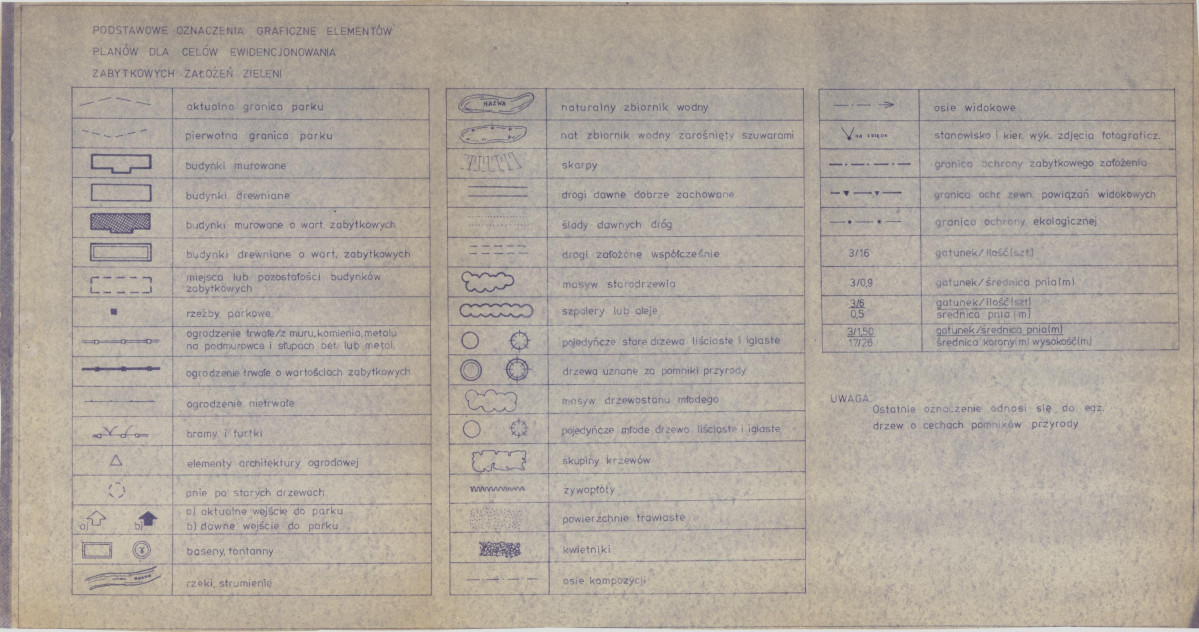 PODSTAWOWE OZNACZENIA GRAFICZNE ELEMENTÓW
PLANÓW DLA CELÓW EWIDENCJONOWANIA
ZABYTKOWYCH ZAŁOŻEŃ ZIELENI
aktualna granica parku
pierwotna granica parku
budynki murowane
budynki drewniane
budynki murowane o wart. zabytkowych
budynki drewniane o wart. zabytkowych
miejsca lub pozostałości budynków
zabytkowych
rzeźby parkowe
ogrodzenie trwałe/z muru, kamienia, metalu
na podmurówce i słupach bet. lub metal.
ogrodzenie trwałe o wartościach zabytkowych
ogrodzenie nietrwałe
bramy i furtki
elementy architektury ogrodowej
pnie po starych drzewach
a) b) a) aktualne wejście do parku
b) dawne wejście do parku
baseny, fontanny
rzeki, strumienie
NAZWA naturalny zbiornik wodny
nat zbiornik wodny zarośnięty szuwarami
skarpy
drogi dawne dobrze zachowane
ślady dawnych dróg
drogi założone współcześnie
masyw starodrzewia
szpalery lub aleje
pojedyńcze stare drzewa liściaste i iglaste
drzewa uznane za pomniki przyrody
masyw drzewostanu młodego
pojedyńcze młode drzewa liściaste i iglaste
skupiny krzewów
żywopłoty
powierzchnie trawiaste
kwietniki
osie kompozycji
osie widokowe
stanowisko i kier. wyk. zdjęcia fotograficz.
granica ochrony zabytkowego założenia
granica ochr zewn. powiązań widokowych
granica ochrony ekologicznej
3/16 gatunek/ilość(szt)
3/0,9 gatunek/średnica pnia(m)
3/6 gatunek/ilość(szt)
0,5 średnica pnia (m)
3/1,50 gatunek/średnica pnia(m)
17/26 średnica korony(m) wysokość(m)
UWAGA
Ostatnie oznaczenie odnosi się do egz.
drzew o cechach pomników przyrody